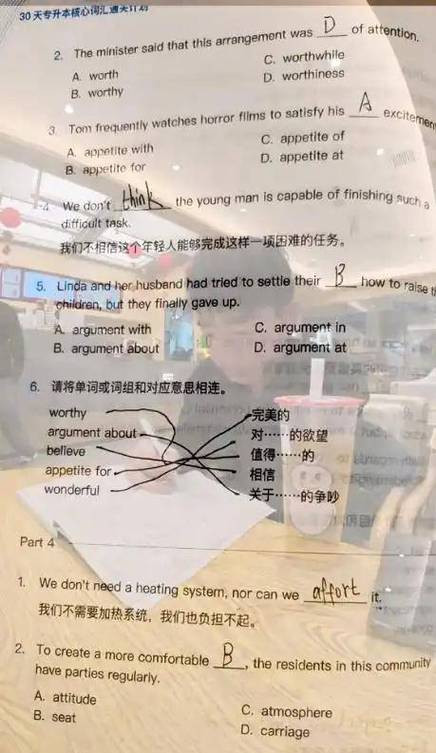 30 天专升本核心词汇通关计划
2. The minister said that this arrangement was D of attention.
A. worth
C. worthwhile
B. worthy
D. worthiness
3. Tom frequently watches horror films to satisfy his A excitement
A. appetite with
C. appetite of
B. appetite for
D. appetite at
4. We don't think the young man is capable of finishing such a
difficult task.
我们不相信这个年轻人能够完成这样一项困难的任务。
5. Linda and her husband had tried to settle their B how to raise
children, but they finally gave up.
A. argument with
C. argument in
B. argument about
D. argument at
6. 请将单词或词组和对应意思相连。
worthy
完美的
argument about
对……的欲望
believe
值得……的
appetite for
相信
wonderful
关于……的争吵
Part 4
1. We don't need a heating system, nor can we affort it.
我们不需要加热系统，我们也负担不起。
2. To create a more comfortable B, the residents in this community
have parties regularly.
A. attitude
C. atmosphere
B. seat
D. carriage